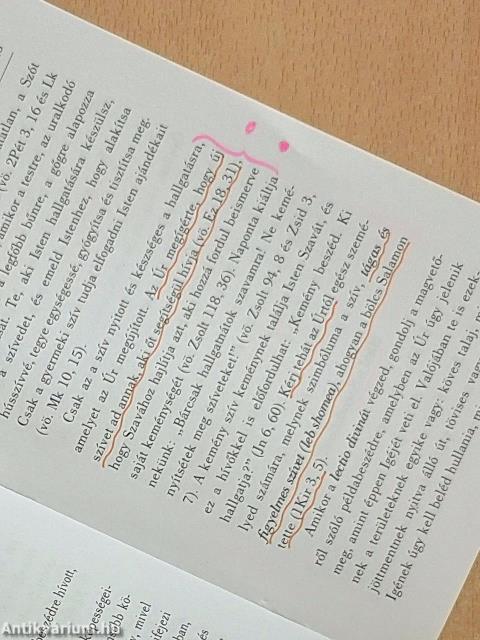 atlan, a Szót
(vö. 2Pét 3, 16 és Lk
amikor a testre, az uralkodó
legfőbb bűnre, a gőgre alapozza
mát. Te, aki Isten hallgatására készülsz,
a szívedet, és emeld Istenhez, hogy alakítsa
hússzívré, tegye egységessé, gyógyítsa és tisztítsa meg.
Csak a gyermeki szív tudja elfogadni Isten ajándékait
(vö. Mk 10, 15).
Csak az a szív nyitott és készséges a hallgatásra,
amelyet az Úr megújított. Az Úr megígérte, hogy új
szívet ad annak, aki őt segítségül hívja (vö. Ez 18, 31),
hogy Szavához hajlítja azt, aki hozzá fordul beismerve
saját keménységét (vö. Zsolt 118, 36). Naponta kiáltja
nekünk: „Bárcsak hallgatnátok szavamra! Ne kemé-
nyítsétek meg szíveteket!” (vö. Zsolt 94, 8 és Zsid 3,
7). A kemény szív keménynek találja Isten Szavát, és
ez a hívőkkel is előfordulhat: „Kemény beszéd. Ki
hallgatja?” (Jn 6, 60). Kérj tehát az Úrtól egész szemé-
lyed számára, melynek szimbóluma a szív, tágas és
figyelmes szívet (leb shomea), ahogyan a bölcs Salamon
tette (1Kir 3, 5).
Amikor a lectio divinát végzed, gondolj a magvető-
ről szóló példabeszédre, amelyben az Úr úgy jelenik
meg, amint éppen Igéjét veti el. Valójában te is ezek-
nek a területeknek egyike vagy: köves talaj, mi
jöttmentnek nyitva álló út, tövises vagy
Igének úgy kell beléd hullania, mi
szédre hívott,
ességei-
több kö-
mivel
ifejezi
ában,
Antikvárium.hu